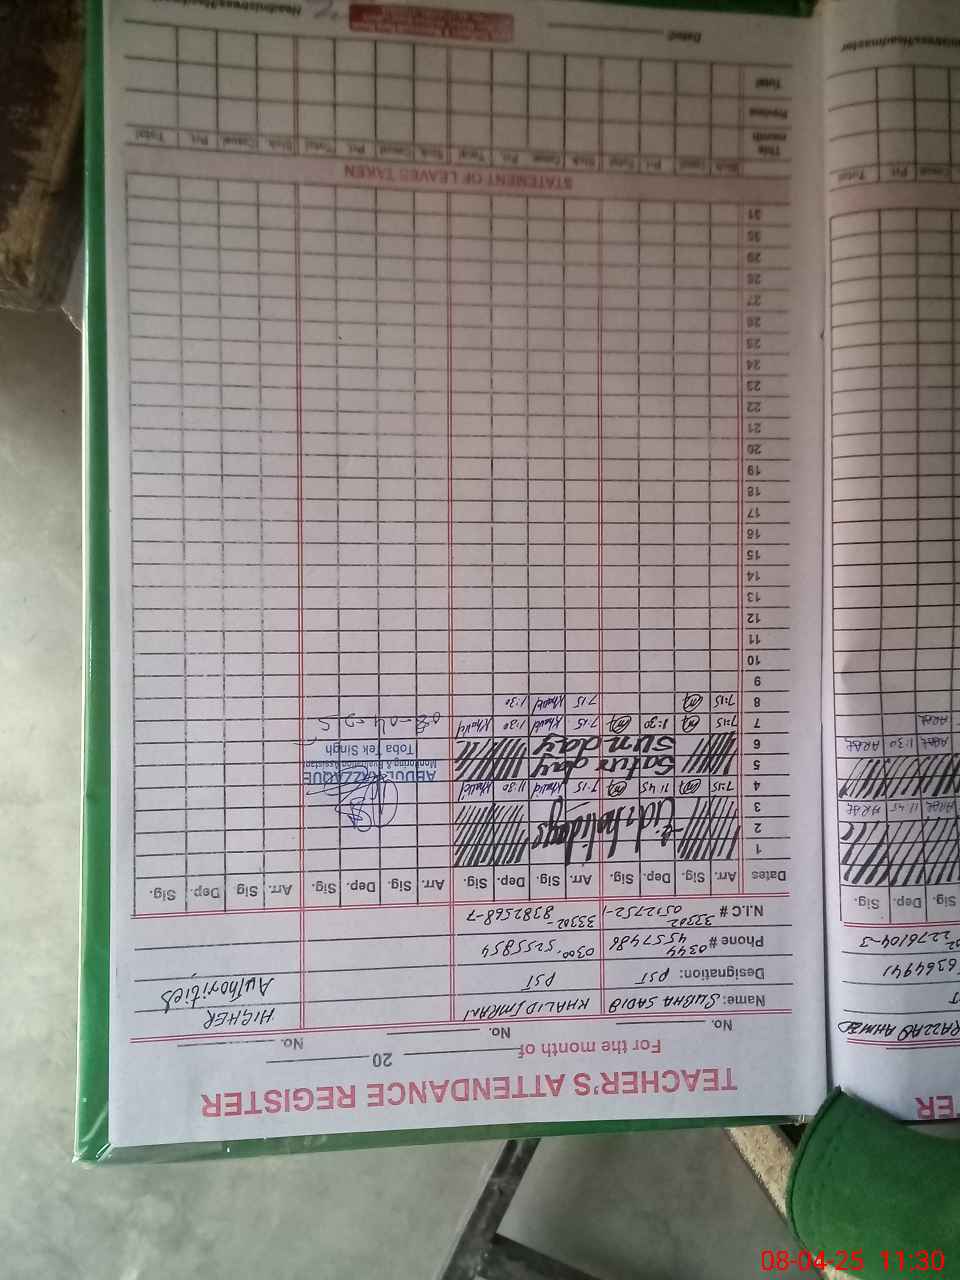 TEACHER'S ATTENDANCE REGISTER
For the month of 20
No. No. No.
Name: SUBHA SADIQ KHALID IMRAN HIGHER
Designation: PST PST Authorities
Phone # 0344 4557486 0300-5255854
N.I.C # 33302 0512752-1 33302-8382568-7
Dates Arr. Sig. Dep. Sig. Arr. Sig. Dep. Sig. Arr. Sig. Dep. Sig. Arr. Sig. Dep. Sig.
1
2 Eid holidays
3
4 7:15 11:45 7:15 Khalid 11:30 Khalid
5 Saturday
ABDUL RAZZAQUE
Monitoring & Evaluation Assistant
6 Sunday
Toba Tek Singh
7 7:15 1:30 7:15 Khalid 1:30 Khalid
08-04-25
8 7:15 7:15 Khalid 1:30
9
10
11
12
13
14
15
16
17
18
19
20
21
22
23
24
25
26
27
28
29
30
31
STATEMENT OF LEAVES TAKEN
Sick Casual Pri. Total Sick Casual Pri. Total Sick Casual Pri. Total Sick Casual Pri. Total
This month
Previous
Total
Dated: Headmistress/Headmaster
TER
RAZZAQ AHMED
6364941
2276104-3
Sig. Dep. Sig.
ARAZ 11:45 ARAZ
ARAZ 1:30 ARAZ
ARAZ
Casual Pri. Total
08-04-25 11:30